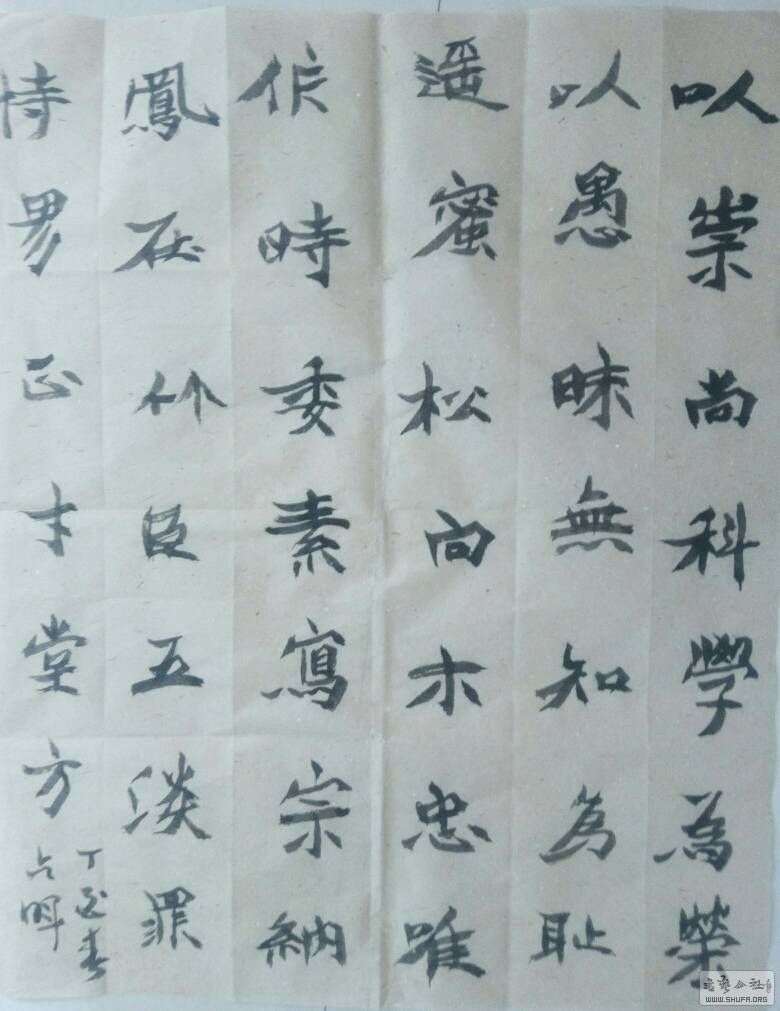 以崇尚科學為榮
以愚昧無知為耻
遥蜜松向木忠唯
時委素寫宗納
鳳在竹臣五淡罪
恃界正才堂方
丁酉春
占明
書藝公社
WWW.SHUFA.ORG